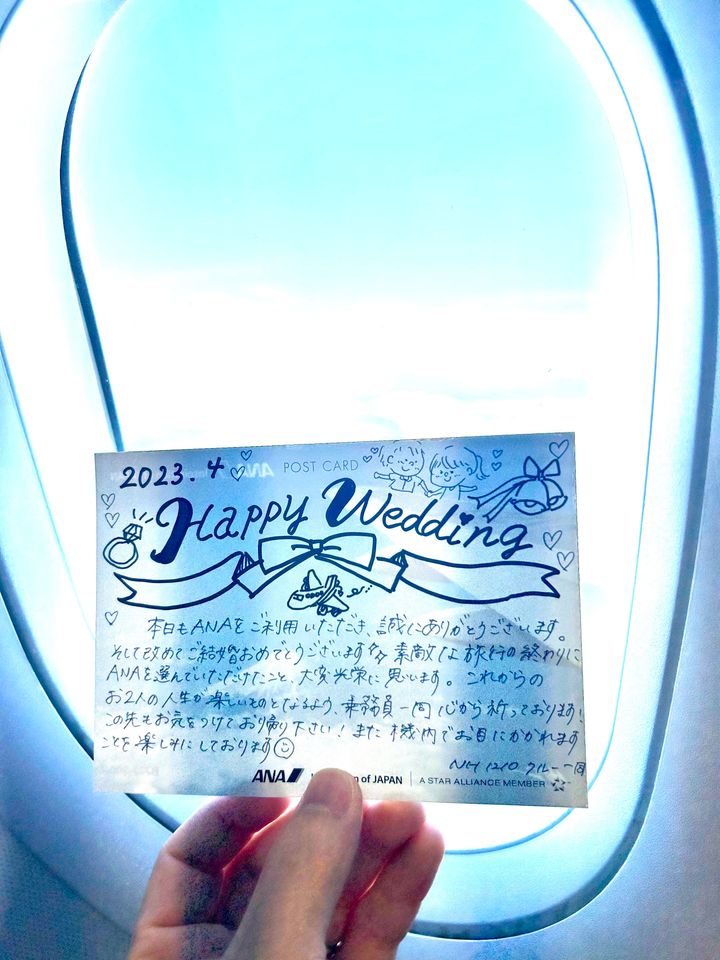 2023.4
POST CARD
Happy Wedding
本日もANAをご利用いただき、誠にありがとうございます。
そして改めてご結婚おめでとうございます 素敵な旅行の終わりに
ANAを選んでいただけたこと、大変光栄に思います。これからの
お2人の人生が楽しいものとなるよう、乗務員一同心から祈っております!
この先もお気をつけてお帰り下さい!また機内でお目にかかれます
ことを楽しみにしております
NH1210 クルー一同
ANA of JAPAN A STAR ALLIANCE MEMBER